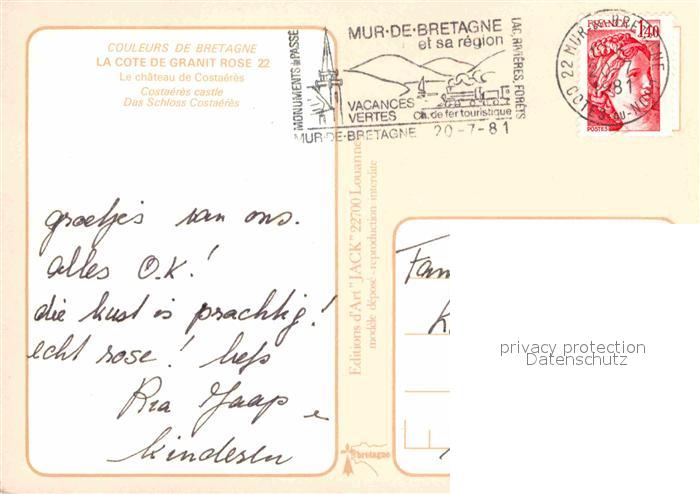 COULEURS DE BRETAGNE
LA COTE DE GRANIT ROSE 22
Le château de Costaérès
Costaérès castle
Das Schloss Costaérès
MONUMENTS du PASSÉ
MUR-DE-BRETAGNE
et sa région
LAC, RIVIÈRES FORÊTS
VACANCES
VERTES
Ch. de fer touristique
MUR-DE-BRETAGNE 20-7-81
22 MUR DE BRETAGNE
81
COTES-DU-NORD
FRANCE
1,40
POSTES
groetjes van ons.
alles O.K.!
die kust is prachtig!
echt rose! liefs
Ria Jaap e
kinderen
Editions d'Art "JACK" 22700 Louannec
modèle déposé - reproduction interdite
bretagne
Fam
K
privacy protection
Datenschutz